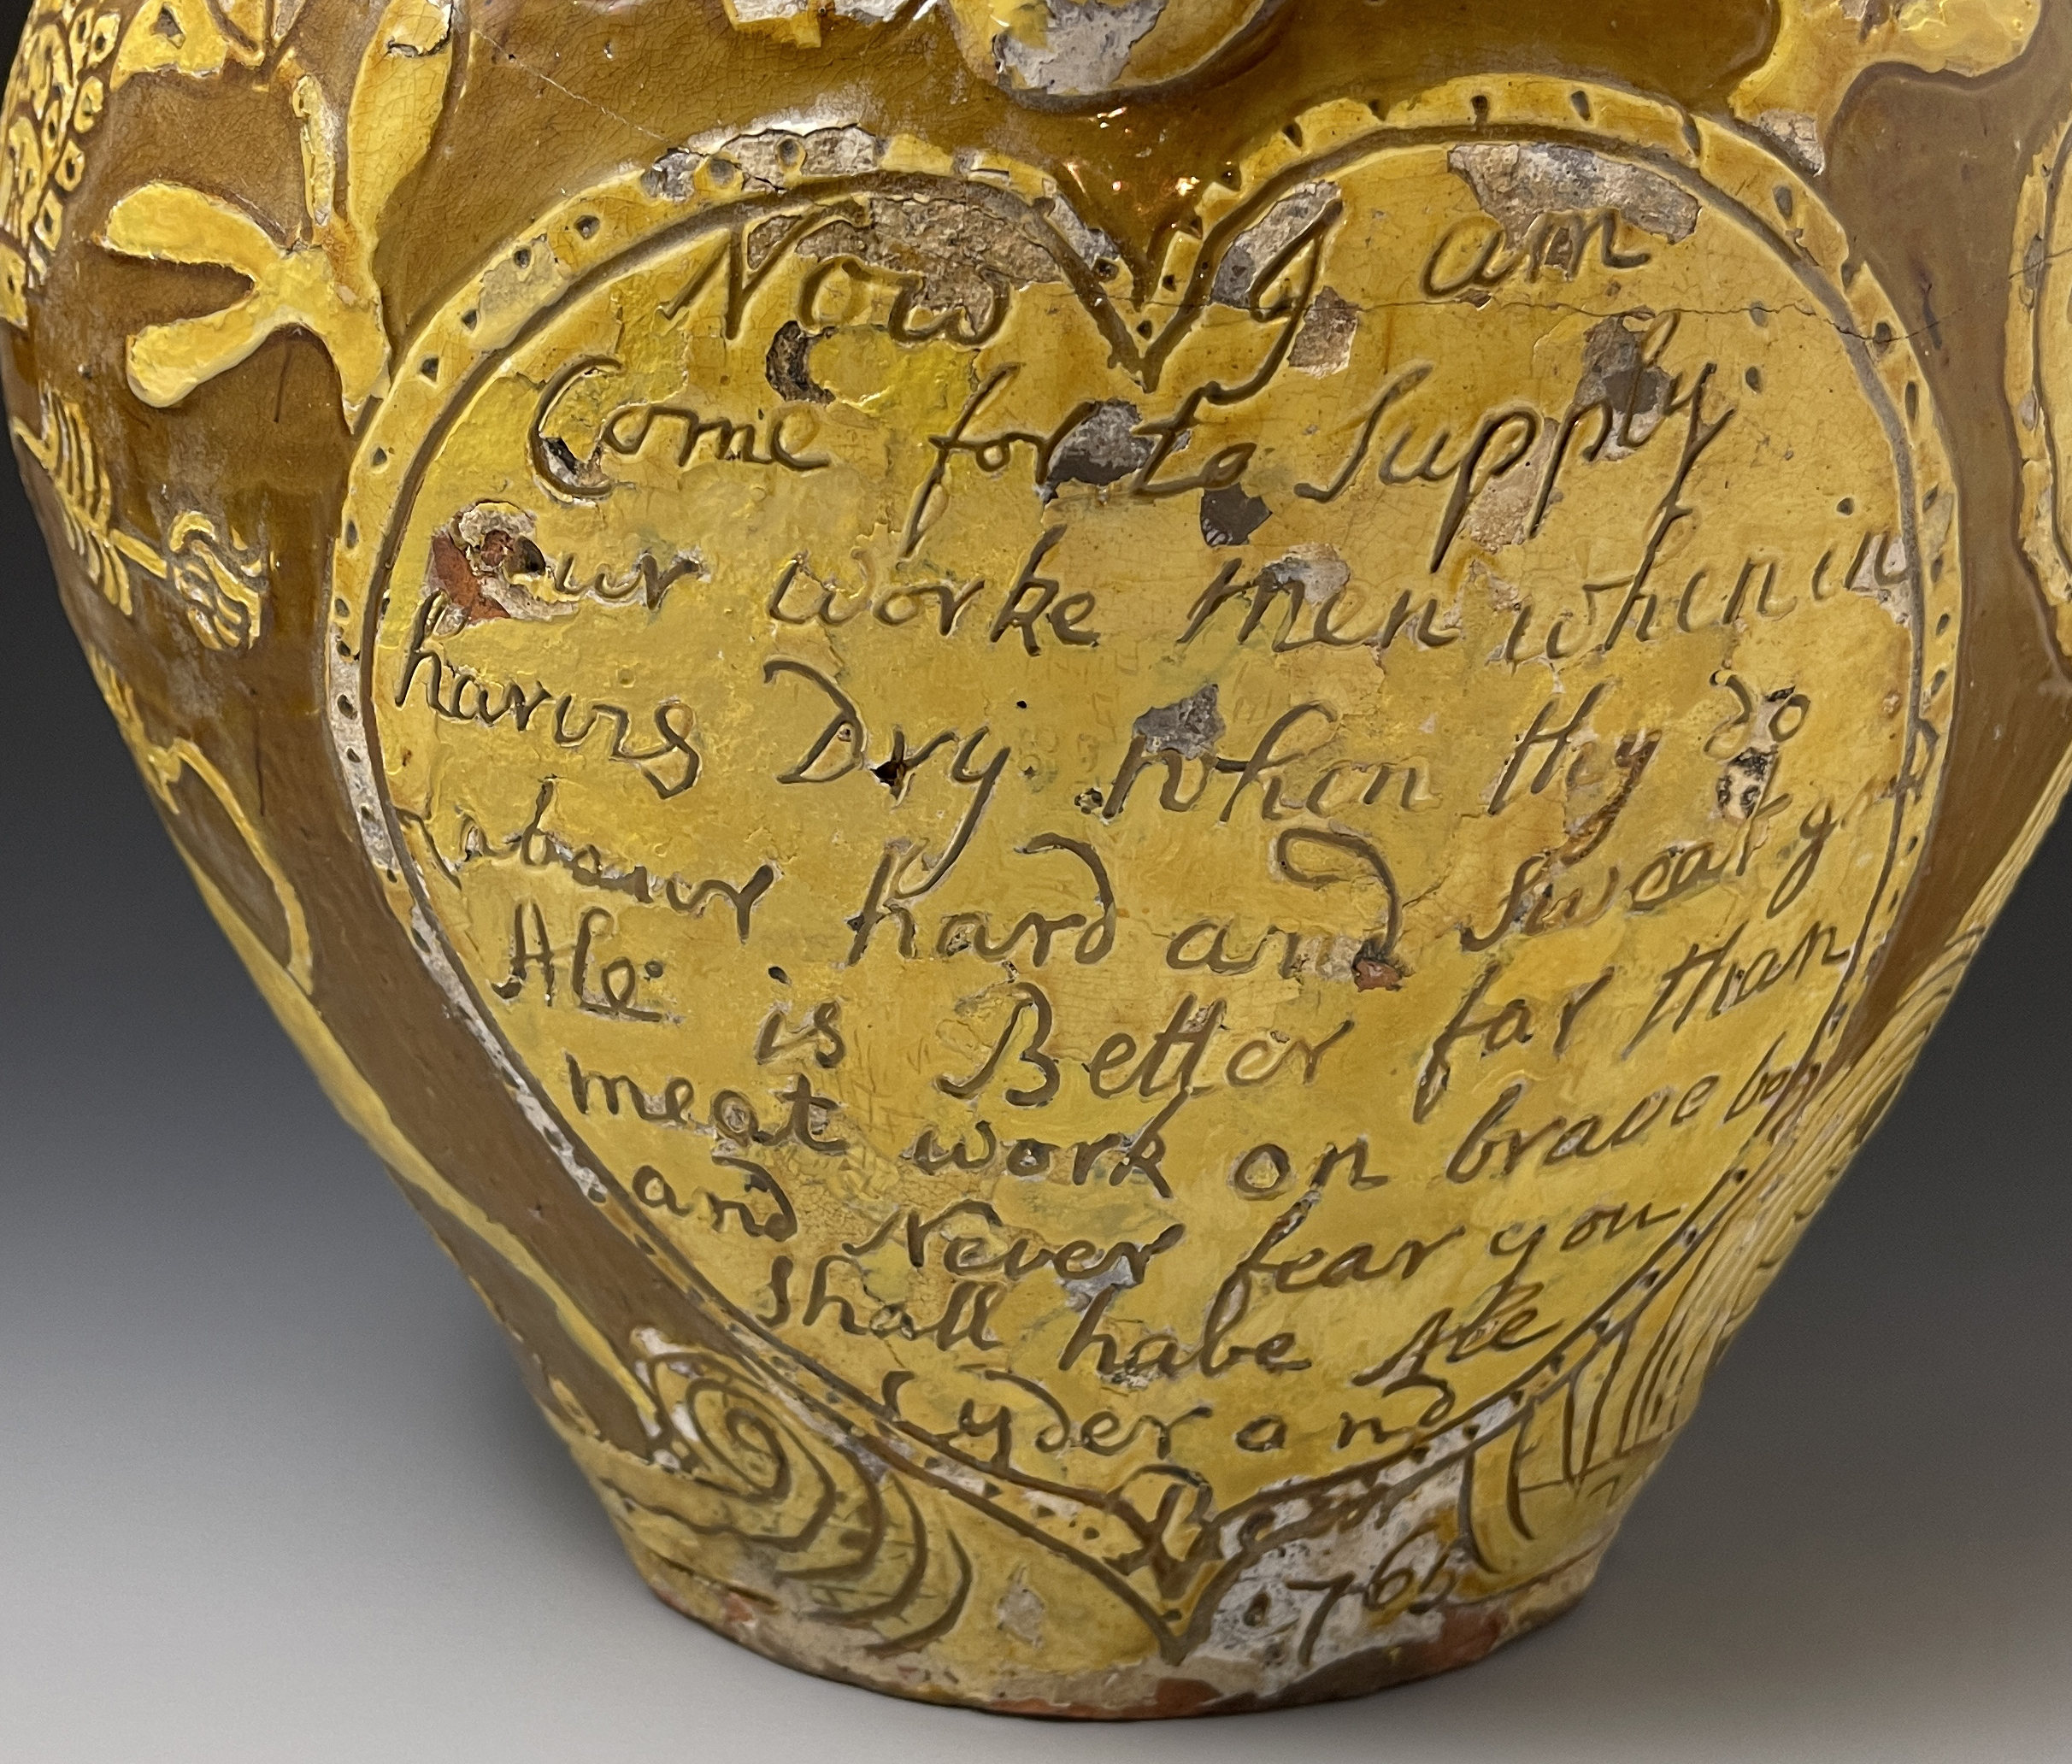 Now I am
Come for to Supply
Our worke men when in
harvis Dry. when they do
Labour hard and sweat
Ale is Better far than
meat work on brave boys
and Never fear you
shall habe Ale
Cyder and
Beear
1765